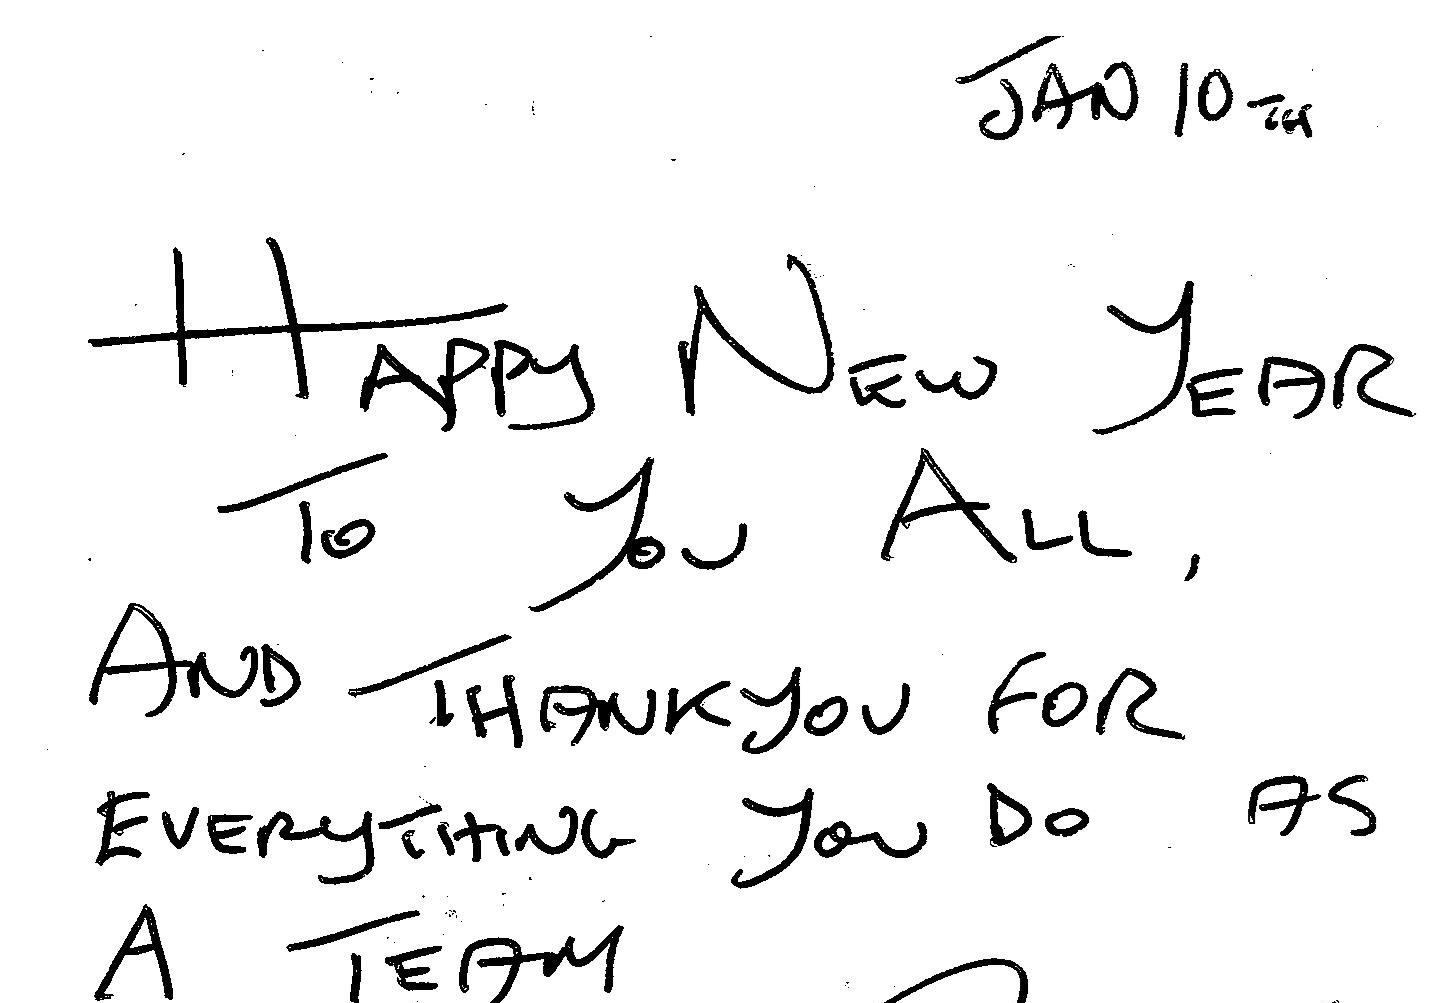 JAN 10TH
HAPPY NEW YEAR
TO YOU ALL,
AND THANKYOU FOR
EVERYTHING YOU DO AS
A TEAM